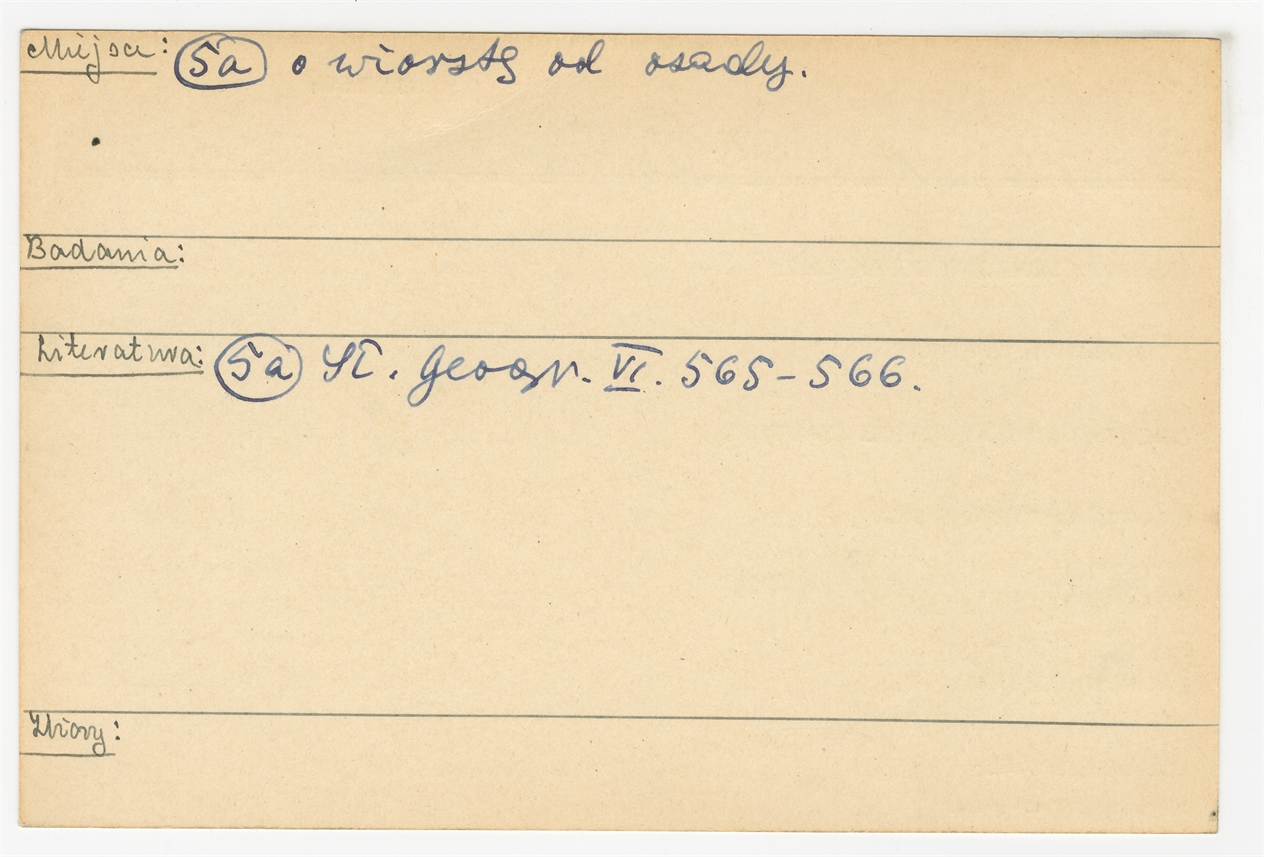 Miejsce: 5a o wiorstę od osady.
Badania:
Literatura: 5a Sł. Geogr. VI. 565-566.
Zbiory: